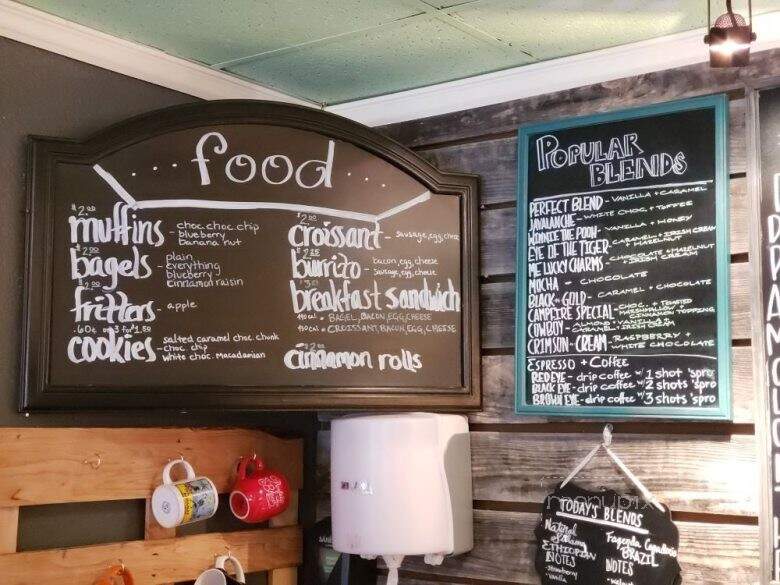 ....food....
$2.00
muffins - choc. choc. chip
blueberry
banana nut
$2.00
bagels - plain
everything
blueberry
cinnamon raisin
$2.00
fritters - apple
.60¢ or 3 for $1.50
cookies salted caramel choc chunk
choc chip
white choc. macadamian
$2.00
croissant - sausage, egg, cheese
burrito - bacon, egg, cheese
sausage, egg, cheese
breakfast sandwich
• BAGEL, BACON, EGG, CHEESE
• CROISSANT, BACON, EGG, CHEESE
cinnamon rolls
POPULAR
BLENDS
PERFECT BLEND - VANILLA + CARAMEL
JAVALANCHE - WHITE CHOC. + TOFFEE
WINNIE THE POOH - VANILLA + HONEY
EYE OF THE TIGER - CARAMEL + IRISH CREAM
+ HAZELNUT
ME LUCKY CHARMS - CHOCOLATE + HAZELNUT
IRISH CREAM
MOCHA - CHOCOLATE
BLACK N GOLD - CARAMEL + CHOCOLATE
CAMPFIRE SPECIAL - CHOC. + TOASTED
MARSHMALLOW + CINNAMON TOPPING
COWBOY - ALMOND + VANILLA +
CARAMEL + IRISH CREAM
CRIMSON + CREAM - RASPBERRY +
WHITE CHOCOLATE
ESPRESSO + COFFEE
RED EYE - drip coffee w/ 1 shot 'spro
BLACK EYE - drip coffee w/ 2 shots 'spro
BROWN EYE - drip coffee w/ 3 shots 'spro
TODAY'S BLENDS
Natural
ETHIOPIAN
NOTES
strawberry
vanilla
BRAZIL
NOTES
menupix